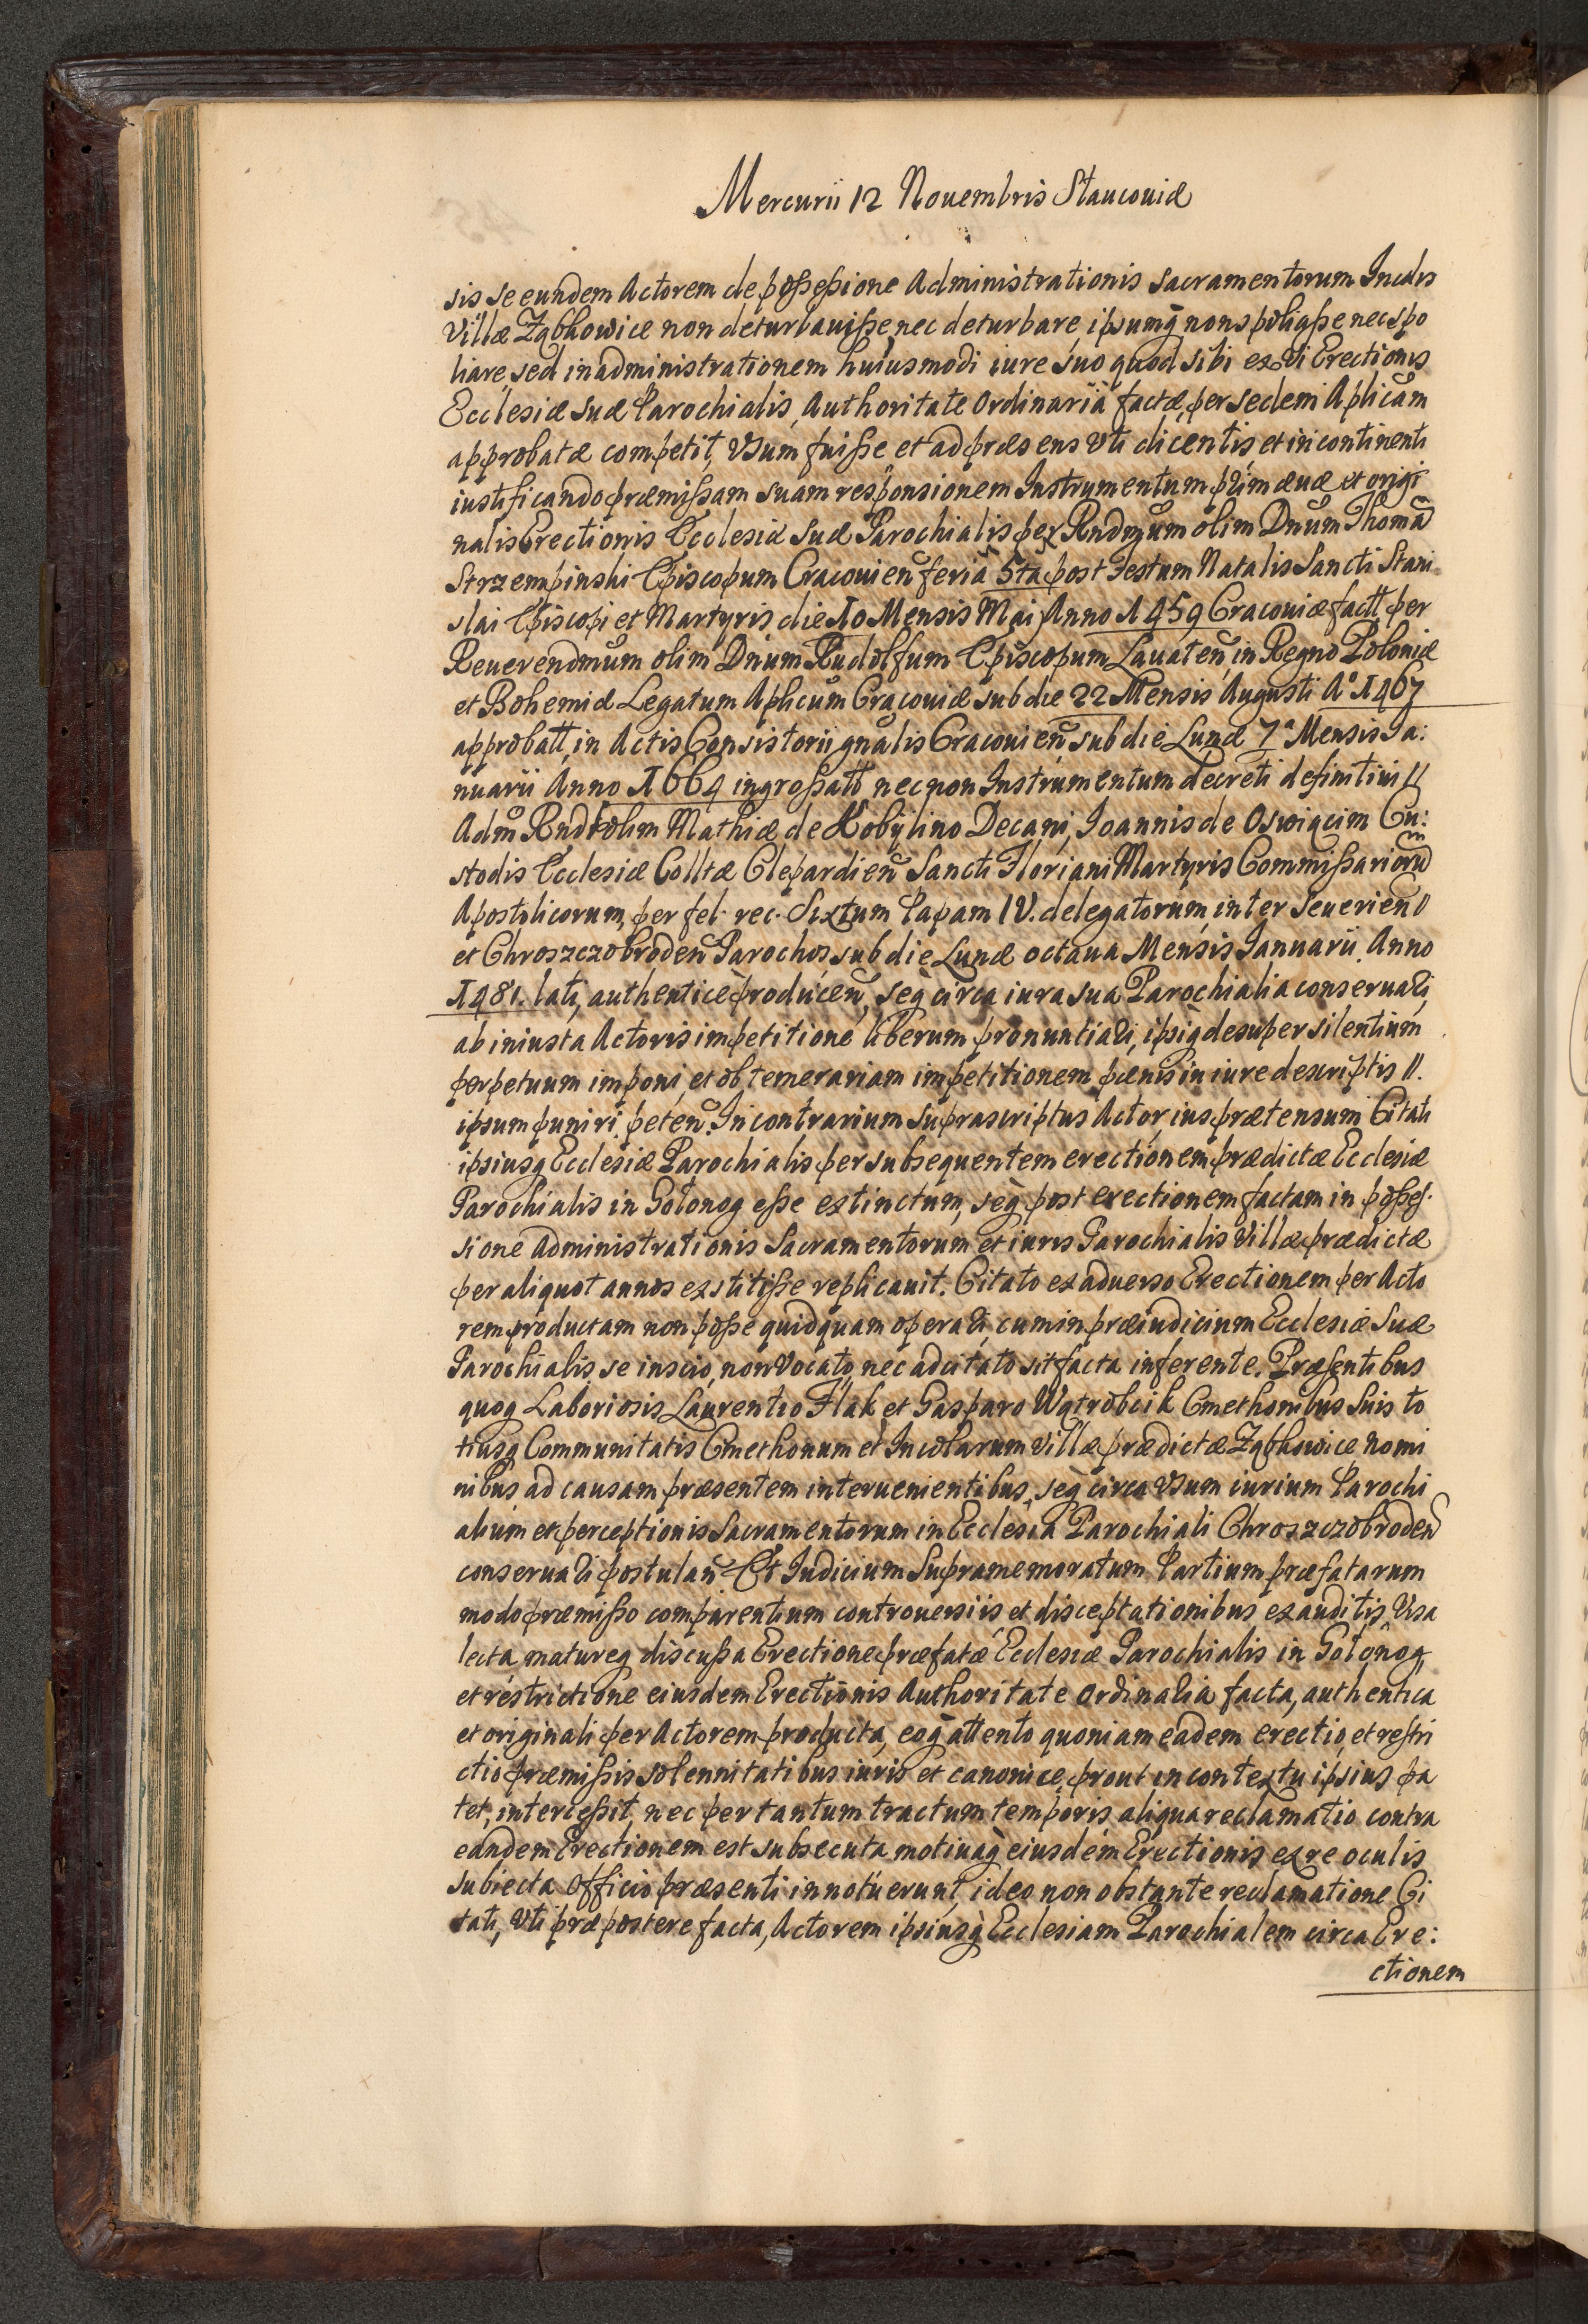 Mercurii 12 Nouembris Stauconiæ
sis se eundem Actorem de possessione Administrationis sacramentorum Incolis
Villæ Ząbkowice non deturbauisse, nec deturbare, ipsumq̃ non spoliasse nec spo
liare, sed in administrationem huiusmodi iure suo quod sibi ex vi Erectionis
Ecclesiæ suæ Parochialis, Authoritate Ordinaria factæ, per sedem Aplicam
approbatæ competit, vsum fuisse et ad præsens vti dicentis et in continenti
iustificando præmissam suam responsionem Instrumentum primæuæ et origi
nalis Erectionis Ecclesiæ suæ Parochialis per Rndm̃um olim Dnum Thomã
Strzempinski Episcopum Cracouien̄ feria 5ta post Festum Natalis Sancti Stani
slai Episcopi et Martyris die 10 Mensis Mai Anno 1459 Cracouiæ factt, per
Reuerendmũm olim Dnum Rudolfum Episcopum Lauaten̄, in Regno Poloniæ
et Bohemiæ Legatum Aplicum Cracouiæ sub die 22 Mensis Augusti A° 1467
approbatt, in Actis Consistorii gnalis Cracouien̄ sub die Lunæ 7ª Mensis Ja:
nuarii Anno 1664 ingrossatt nec non Instrumentum decreti definitiui //
Adm̃ Rndor̃ olim Mathiæ de Kobÿlino Decani, Joannis de Oswięcim Cu:
stodis Ecclesiæ Colltæ Clepardien̄ Sancti Floriani Martyris Commissariorũ
Apostolicorum, per fel. rec. Sixtum Papam IV. delegatorum, inter Seuerien̄
et Chroszczobroden̄ Parochos sub die Lunæ octaua Mensis Januarii Anno
1481. lati, authenticè producen̄, seq̃ circa iura sua Parochialia conseruari,
ab iniusta Actoris impetitione liberum pronuntiari, ipsiq̃ desuper silentium
perpetuum imponi, et ob temerariam impetitionem pænis in iure descriptis //.
ipsum puniri peten̄. In contrarium suprascriptus Actor, ius prætensum Citati
ipsiusq̃ Ecclesiæ Parochialis per subsequentem erectionem prædictæ Ecclesiæ
Parochialis in Gołonog esse extinctum, seq̃ post erectionem factam in posses.
sione Administrationis Sacramentorum et iuris Parochialis Villæ prædictæ
per aliquot annos exstitisse replicauit. Citato ex aduerso Erectionem per Acto
rem productam non posse quidquam operari, cum in præiudicium Ecclesiæ suæ
Parochialis, se inscio, non vocato, nec adcitato sit facta inferente. Præsentibus
quoq̃ Laboriosis Laurentio Flak et Gasparo Wątrobcik Cmethonibus suis to
tiusq̃ Communitatis Cmethonum et Incolarum villæ prædictæ Ząbkowice nomi
nibus ad causam præsentem interuenientibus, seq̃ circa vsum iurium Parochi
alium et perceptionis Sacramentorum in Ecclesia Parochiali Chroszczobroden̄
conseruari postulan̄. Et Iudicium Supramemoratum Partium præfatarum
modo præmisso comparentium controuersiis et disceptationibus exauditis, Visa
lecta, matureq̃ discussa Erectione præfatæ Ecclesiæ Parochialis in Gołonog
et restrictione eiusdem Erectionis Authoritate Ordinaria facta, authentica
et originali per Actorem producta, eoq̃ attento quoniam eadem erectio, et restri
ctio præmissis solennitatibus iuris et canonice, prout in contextu ipsius pa
tet, intercessit, nec per tantum tractum temporis aliqua reclamatio contra
eandem Erectionem est subsecuta, motiuaq̃ eiusdem Erectionis ex re oculis
subiecta Officio præsenti innotuerunt, ideo non obstante reclamatione Ci
tati, vti præpostere facta, Actorem ipsiusq̃ Ecclesiam Parochialem circa Ere:
ctionem